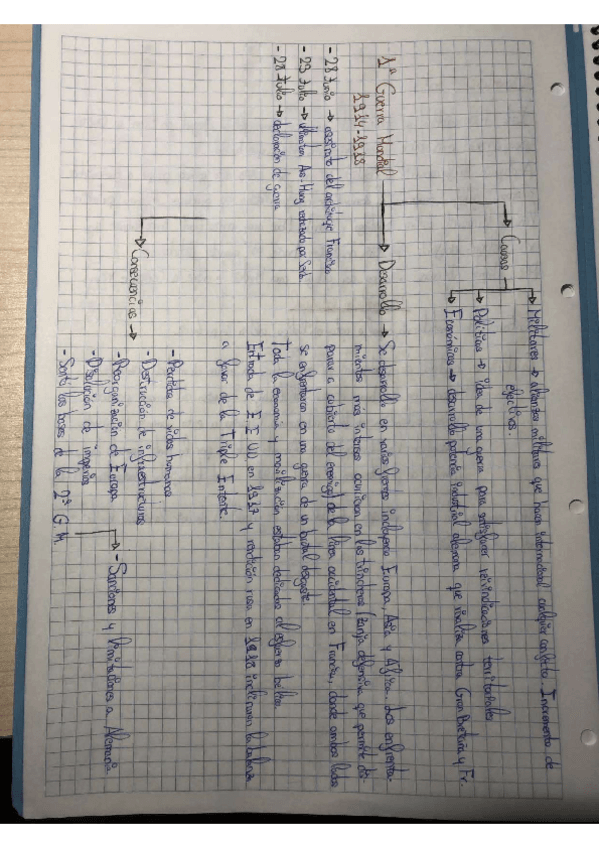 1ª Guerra Mundial
1914-1918
- 28 Junio → asesinato del archiduque Francisco
- 23 Julio → ultimátum Aus-Hung rechazado por Serbia
- 28 Julio → declaración de guerra
Causas
Militares → alianzas militares que hacen internacional cualquier conflicto. Incremento de
efectivos.
Políticas → idea de una guerra para satisfacer reivindicaciones territoriales
Económicas → desarrollo potencia industrial alemana que rivaliza contra Gran Bretaña y Fr.
Desarrollo → Se desarrolló en varios frentes incluyendo Europa, Asia y África. Los enfrenta-
mientos más intensos ocurrieron en las trincheras (zanja defensiva que permite dis-
parar a cubierto del enemigo) de la línea occidental en Francia, donde ambos lados
se enfrentaron en una guerra de un brutal desgaste.
Toda la economía y movilización estaban dedicadas al esfuerzo bélico.
Entrada de EEUU en 1917 y rendición rusa en 1918 inclinaron la balanza
a favor de la Triple Entente.
Consecuencias →
- Pérdida de vidas humanas
- Destrucción de infraestructuras
- Reorganización de Europa
- Disolución de imperios
- Sentó las bases de la 2ª G.M.
- Sanciones y limitaciones a Alemania